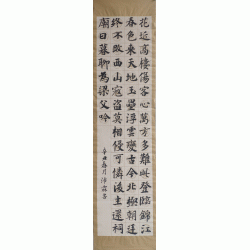 花近高樓傷客心萬方多難此登臨錦江
春色來天地玉壘浮雲變古今北極朝廷
終不改西山寇盜莫相侵可憐後主還祠
廟日暮聊為梁父吟
辛丑春月